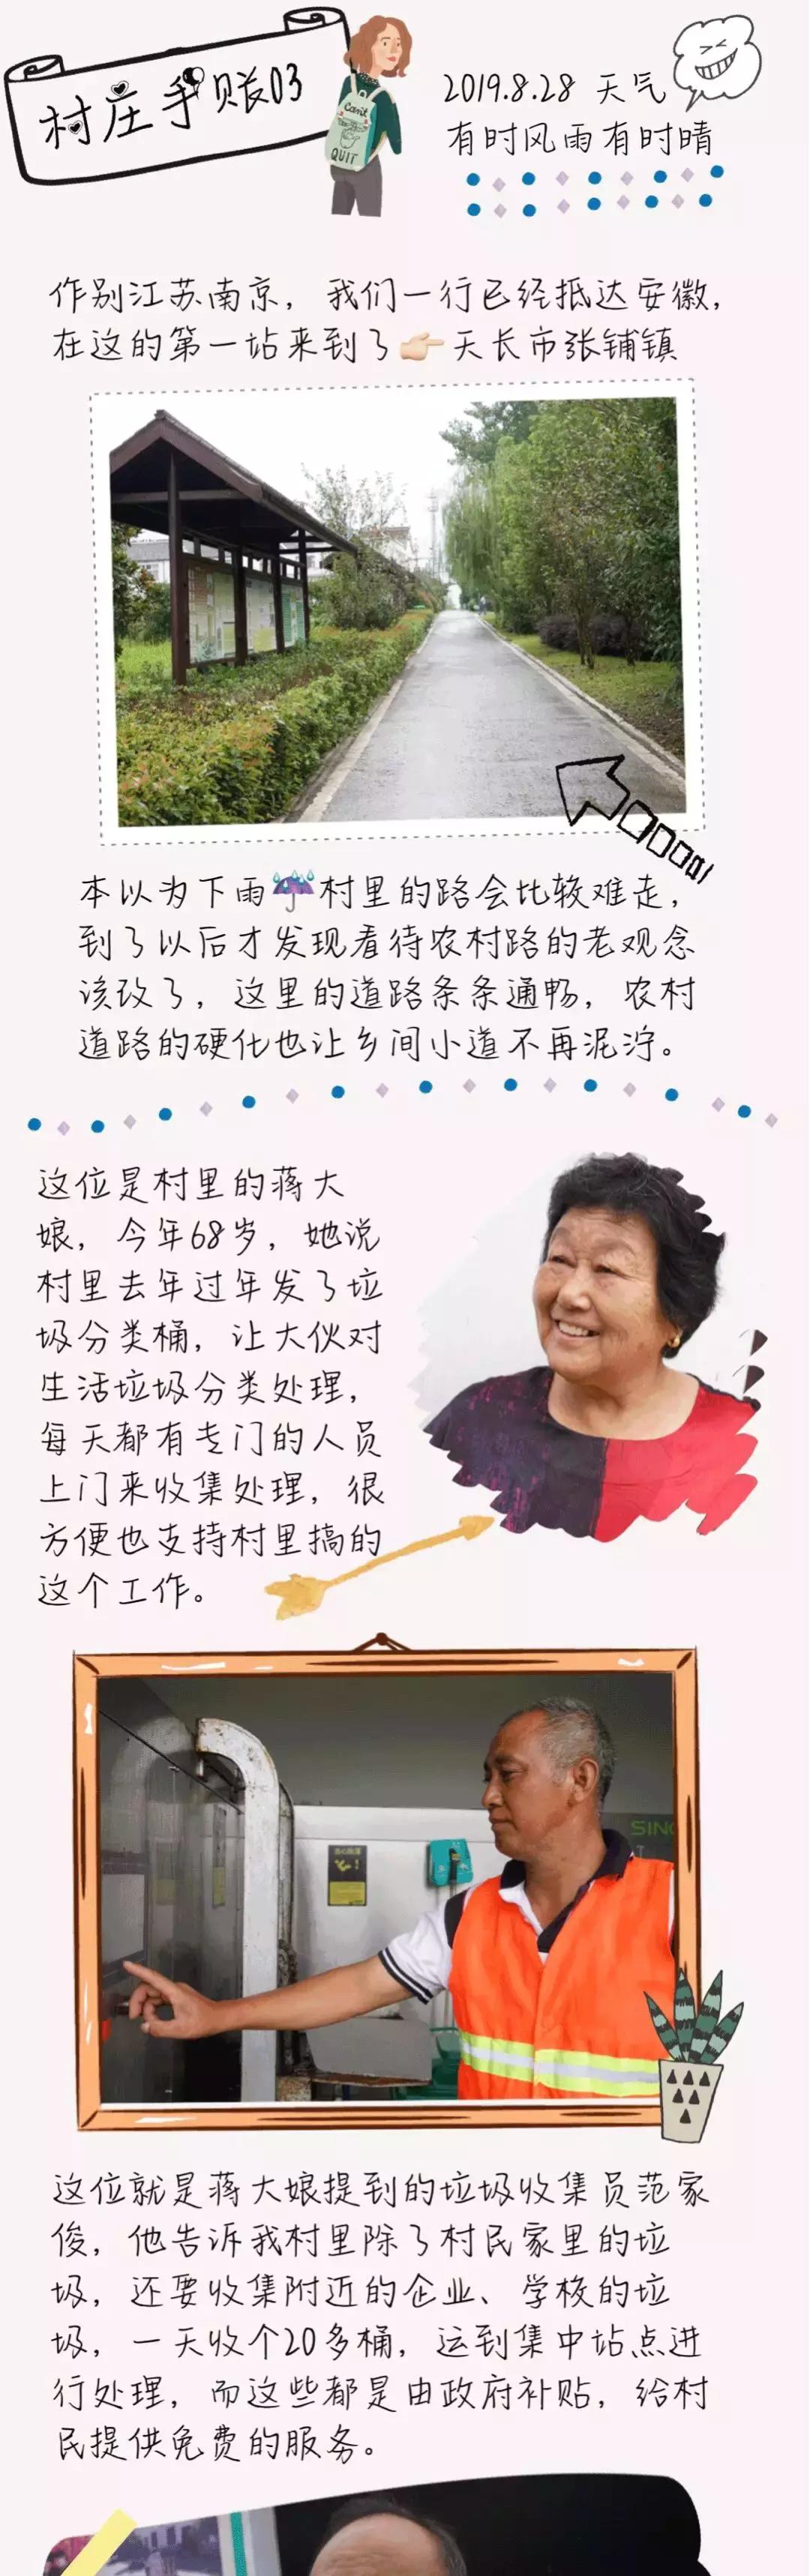 村庄手账03
Can't
QUIT
2019.8.28 天气
有时风雨有时晴
作别江苏南京，我们一行已经抵达安徽，
在这的第一站来到了👉🏻天长市张铺镇
本以为下雨☔村里的路会比较难走，
到了以后才发现看待农村路的老观念
该改了，这里的道路条条通畅，农村
道路的硬化也让乡间小道不再泥泞。
这位是村里的蒋大
娘，今年68岁，她说
村里去年过年发了垃
圾分类桶，让大伙对
生活垃圾分类处理，
每天都有专门的人员
上门来收集处理，很
方便也支持村里搞的
这个工作。
SINO
这位就是蒋大娘提到的垃圾收集员范家
俊，他告诉我村里除了村民家里的垃
圾，还要收集附近的企业、学校的垃
圾，一天收个20多桶，运到集中站点进
行处理，而这些都是由政府补贴，给村
民提供免费的服务。